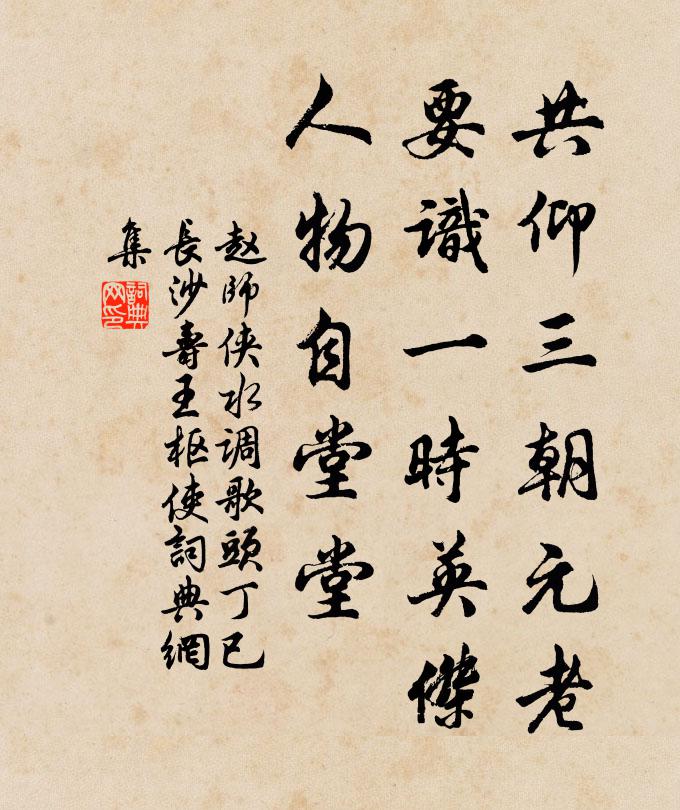 共仰三朝元老
要識一時英傑
人物自堂堂
赵師俠水调歌頭丁巳
長沙壽王枢使詞典網
集
詞典
网印